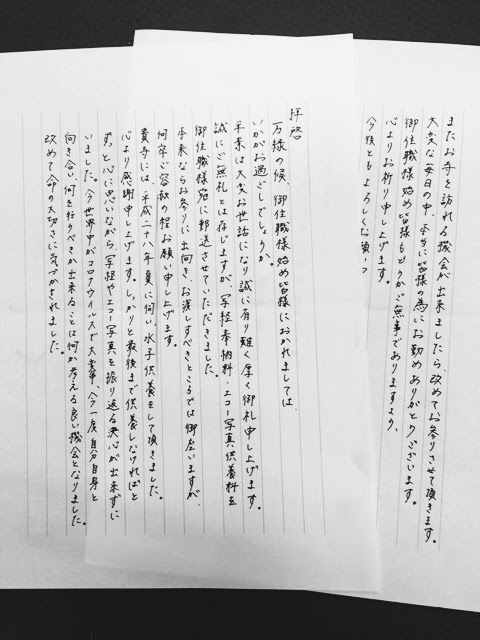 拝啓
万緑の候、御住職様始め皆様におかれましては、
いかがお過ごしでしょうか。
平素は大変お世話になり誠に有り難く厚く御礼申し上げます。
誠にご無礼とは存じますが、写経奉納料・エコー写真供養料を
御住職様宛に郵送させていただきました。
本来ならお参りに出向き、お渡しすべきところでは御座いますが、
何卒ご容赦の程お願い申し上げます。
貴寺には、平成二十八年夏に伺い水子供養をして頂きました。
心より感謝申し上げます。しっかりと最後まで供養しなければと
ずっと心に思いながら、写経やエコー写真を振り返る決心が出来ずに
いました。今世界中がコロナウィルスで大変な中、今一度自分自身と
向き合い、何を行うべきか出来ることは何か考える良い機会となりました。
改めて命の大切さに気づかされました。
またお寺を訪れる機会が出来ましたら、改めてお参りさせて頂きます。
大変な毎日の中、本当に皆様の為にお勤めありがとうございます。
御住職様始め皆様もどうかご無事でありますよう、
心よりお祈り申し上げます。
今後ともよろしくお願い